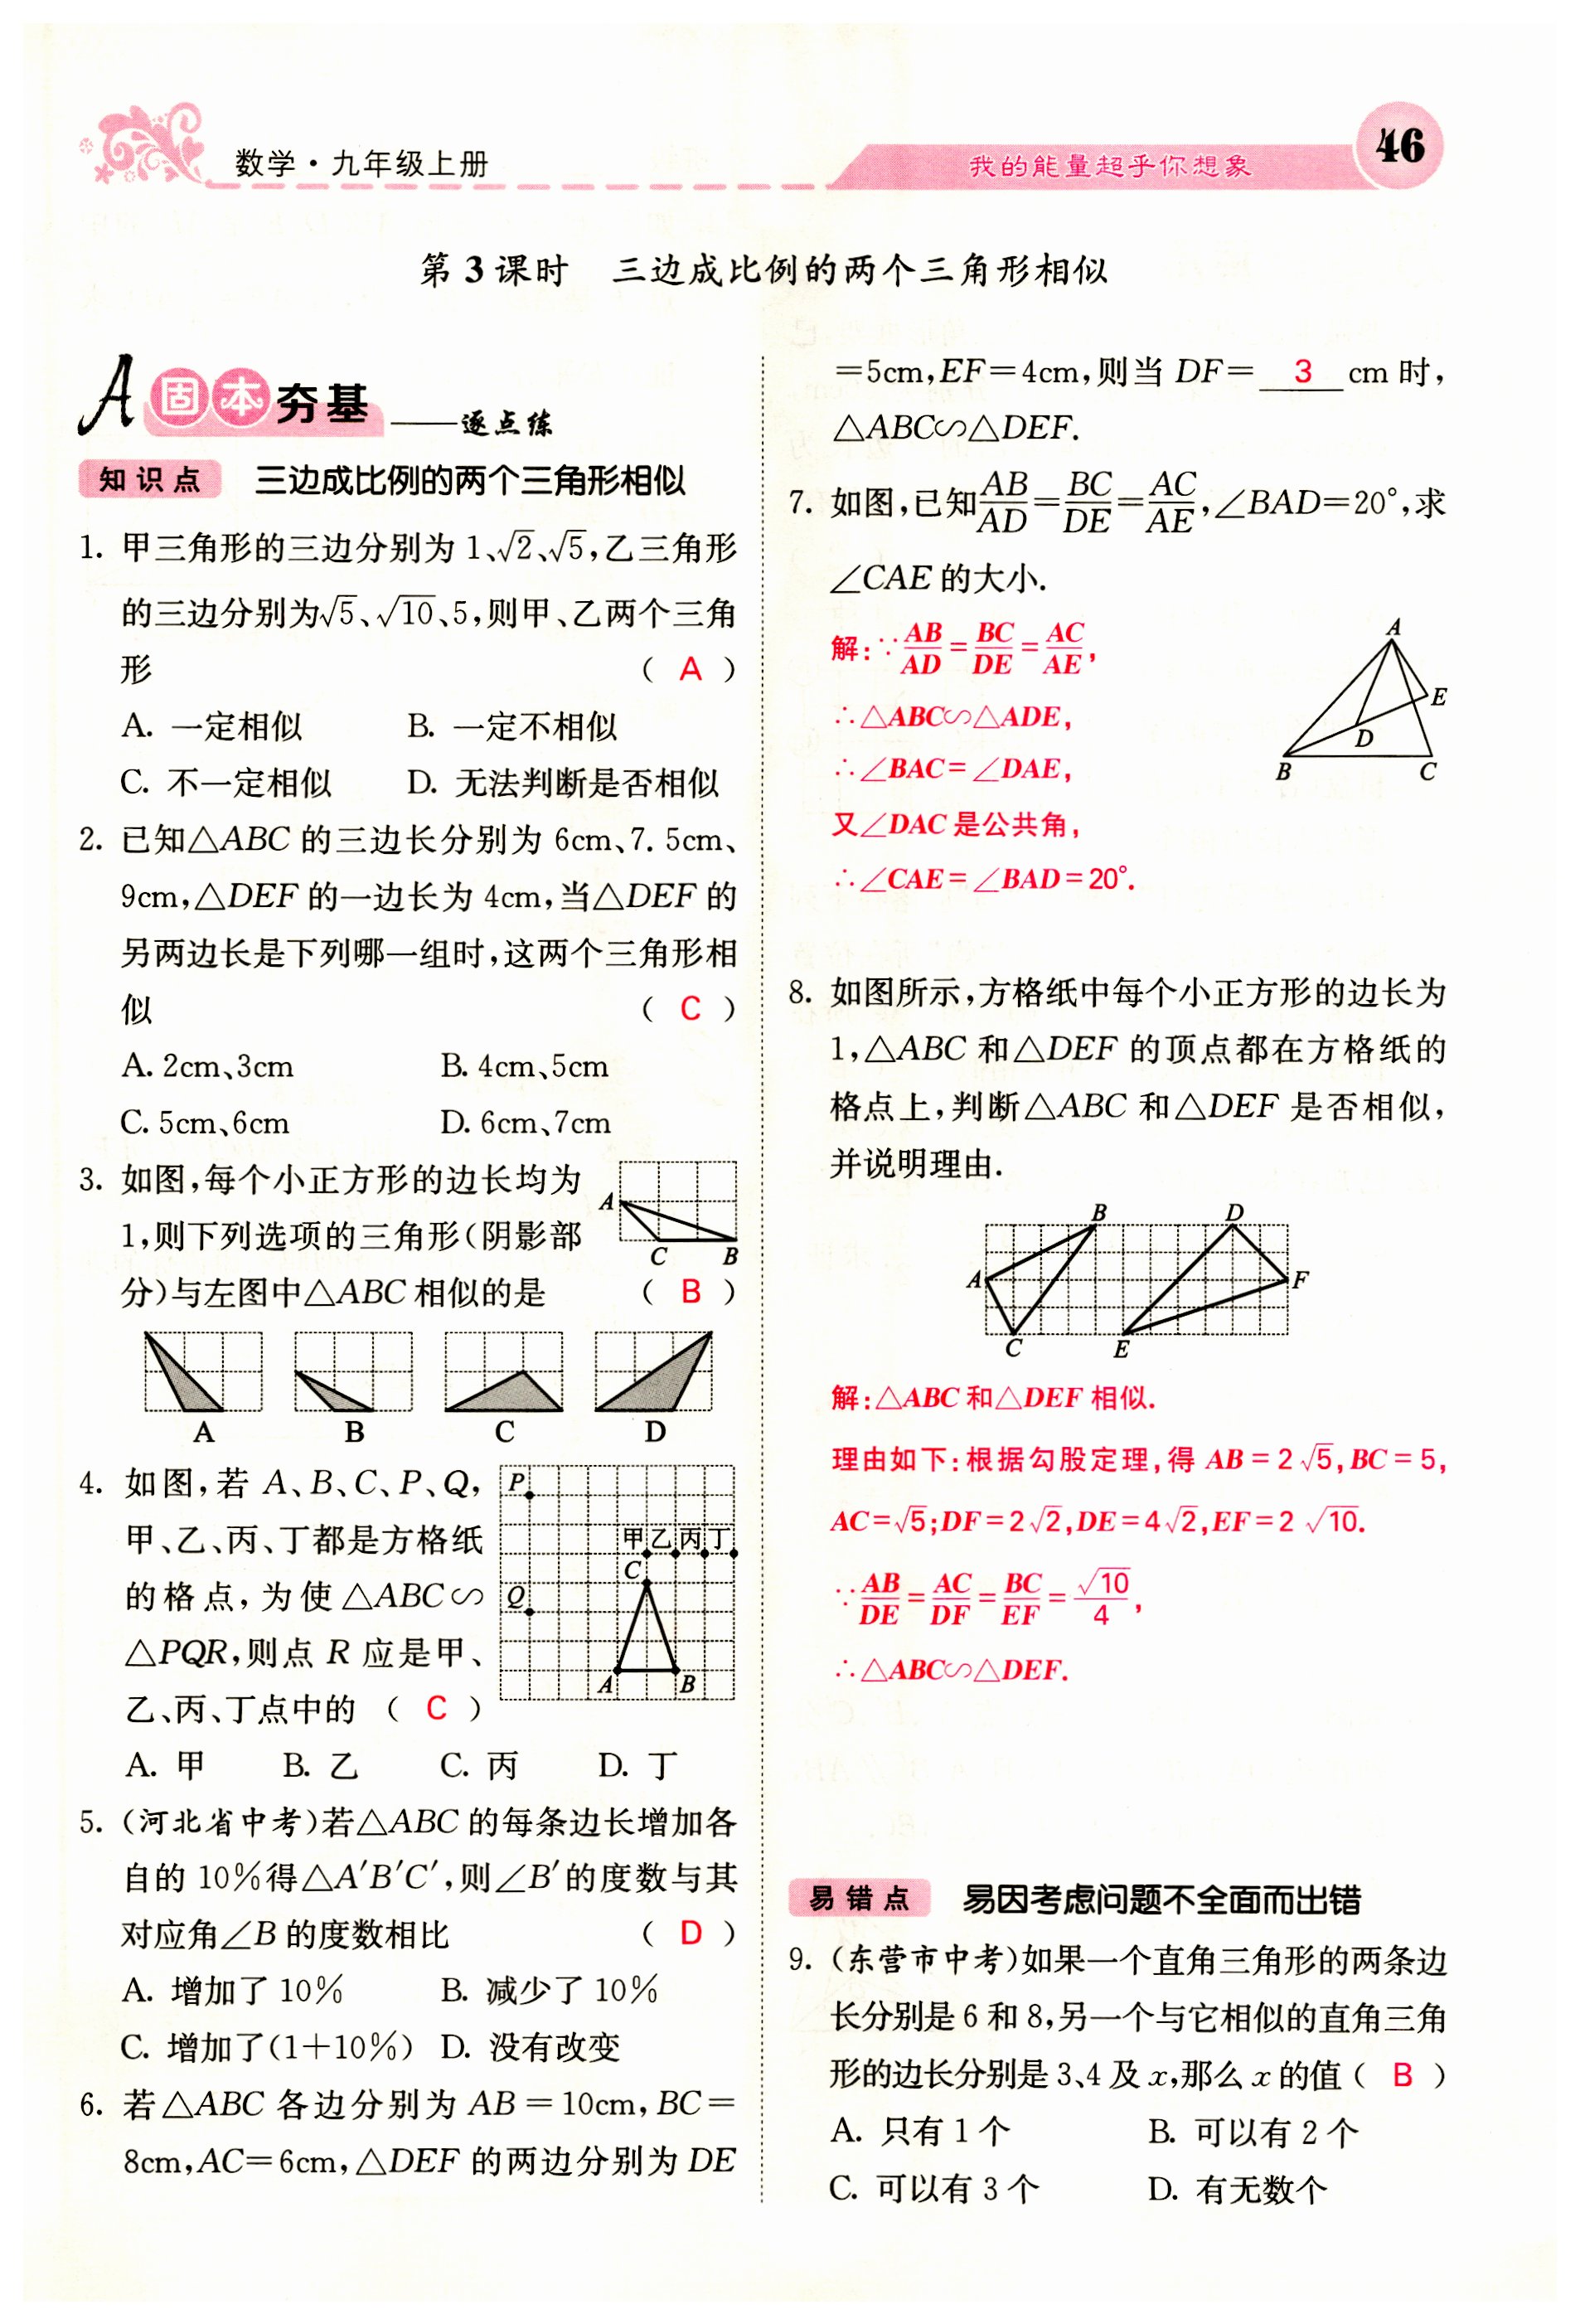 数学·九年级上册
我的能量超乎你想象
46
第3课时 三边成比例的两个三角形相似
A 固本夯基 ——逐点练
知识点 三边成比例的两个三角形相似
1. 甲三角形的三边分别为 1、√2、√5,乙三角形
的三边分别为√5、√10、5,则甲、乙两个三角
形 ( A )
A. 一定相似 B. 一定不相似
C. 不一定相似 D. 无法判断是否相似
2. 已知△ABC 的三边长分别为 6cm、7.5cm、
9cm,△DEF 的一边长为 4cm,当△DEF 的
另两边长是下列哪一组时,这两个三角形相
似 ( C )
A. 2cm、3cm B. 4cm、5cm
C. 5cm、6cm D. 6cm、7cm
3. 如图,每个小正方形的边长均为
1,则下列选项的三角形(阴影部
分)与左图中△ABC 相似的是 ( B )
A
C B
A B C D
4. 如图,若 A、B、C、P、Q,
甲、乙、丙、丁都是方格纸
的格点,为使△ABC∽
△PQR,则点 R 应是甲、
乙、丙、丁点中的 ( C )
P
甲 乙 丙 丁
C
Q
A B
A. 甲 B. 乙 C. 丙 D. 丁
5. (河北省中考)若△ABC 的每条边长增加各
自的 10%得△A′B′C′,则∠B′的度数与其
对应角∠B 的度数相比 ( D )
A. 增加了 10% B. 减少了 10%
C. 增加了(1+10%) D. 没有改变
6. 若△ABC 各边分别为 AB=10cm,BC=
8cm,AC=6cm,△DEF 的两边分别为 DE
=5cm,EF=4cm,则当 DF= 3 cm 时,
△ABC∽△DEF.
7. 如图,已知AB/AD=BC/DE=AC/AE,∠BAD=20°,求
∠CAE 的大小.
解:∵AB/AD=BC/DE=AC/AE,
∴△ABC∽△ADE,
∴∠BAC=∠DAE,
又∠DAC 是公共角,
∴∠CAE=∠BAD=20°.
A
E
D
B C
8. 如图所示,方格纸中每个小正方形的边长为
1,△ABC 和△DEF 的顶点都在方格纸的
格点上,判断△ABC 和△DEF 是否相似,
并说明理由.
B D
A F
C E
解:△ABC 和△DEF 相似.
理由如下:根据勾股定理,得 AB=2√5,BC=5,
AC=√5;DF=2√2,DE=4√2,EF=2√10.
∵AB/DE=AC/DF=BC/EF=√10/4,
∴△ABC∽△DEF.
易错点 易因考虑问题不全面而出错
9. (东营市中考)如果一个直角三角形的两条边
长分别是 6 和 8,另一个与它相似的直角三角
形的边长分别是 3、4 及 x,那么 x 的值 ( B )
A. 只有 1 个 B. 可以有 2 个
C. 可以有 3 个 D. 有无数个